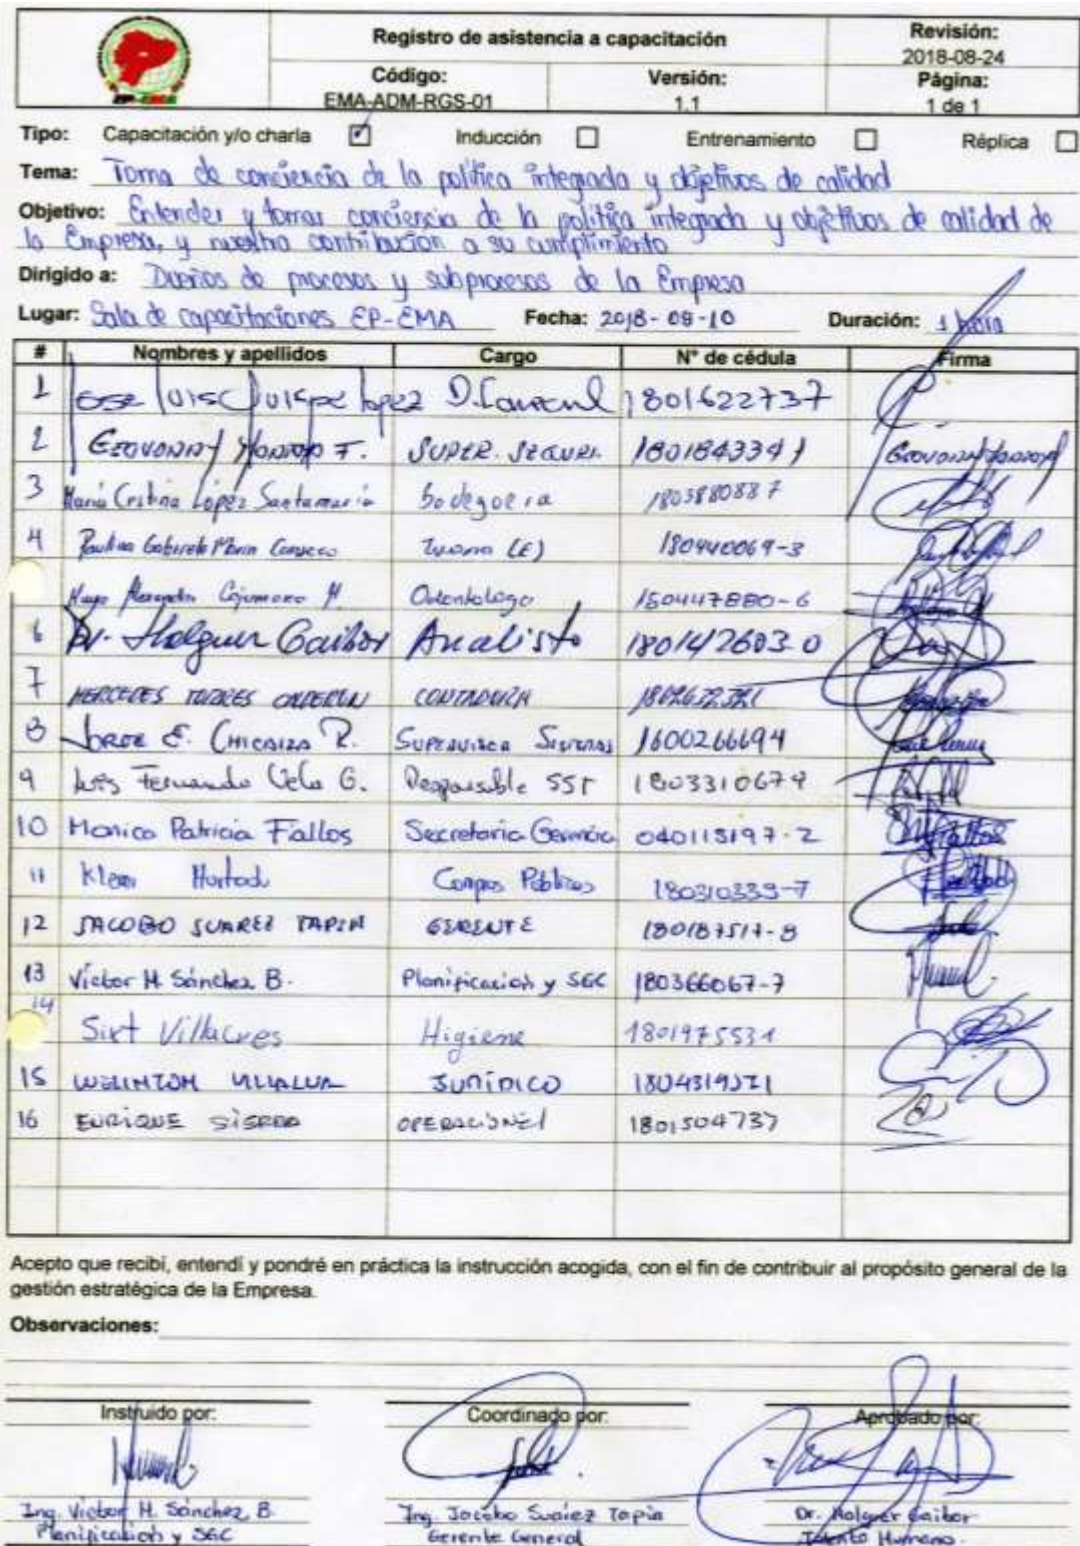 Registro de asistencia a capacitación
Revisión:
2018-08-24
Código:
EMA-ADM-RGS-01
Versión:
1.1
Página:
1 de 1
Tipo: Capacitación y/o charla Inducción Entrenamiento Réplica
Tema: Toma de conciencia de la política integrada y objetivos de calidad
Objetivo: Entender y tomar conciencia de la política integrada y objetivos de calidad de
la Empresa, y nuestra contribución a su cumplimiento
Dirigido a: Dueños de procesos y subprocesos de la Empresa
Lugar: Sala de capacitaciones EP-EMA Fecha: 2018-09-10 Duración: 1 hora
# Nombres y apellidos Cargo N° de cédula Firma
1 Jose Luis Quispe Lopez 1801622737
2 Geovanny F. SUPER. SEGURI. 1801843341
3 María Cristina López Santamaría bodeguera 180388088 7
4 Paulina Gabriela (E) 180440069-3
Hugo Alexander Odontologo
6 Dr. Holguer Gaibor Analista 180142603-0
7 MERCEDES TORRES CALDERON CONTADORA
8 JORGE E. CHICAIZA R. SUPERVISOR SISTEMAS 1600266694
9 Luis Fernando Vela G. Responsable SST 1803310674
10 Monica Patricia Fallos Secretaria Gerencia 040115197-2
11 Hurtado Campos Públicos 180310339-7
12 JACOBO SUAREZ TAPIA GERENTE 180187517-8
13 Víctor M. Sánchez B. Planificación y SGC 180366067-7
14
Sixt Villacres Higiene 1801975531
15 WELINTON VILLALVA JURÍDICO
16 ENRIQUE SIERRA OPERACIONES 1801504737
Acepto que recibí, entendí y pondré en práctica la instrucción acogida, con el fin de contribuir al propósito general de la
gestión estratégica de la Empresa.
Observaciones:
Instruido por: Coordinado por: Aprobado por:
Ing. Victor M. Sánchez B. Ing. Jacobo Suarez Tapia Dr. Holguer Gaibor
Planificación y SGC Gerente General Talento Humano